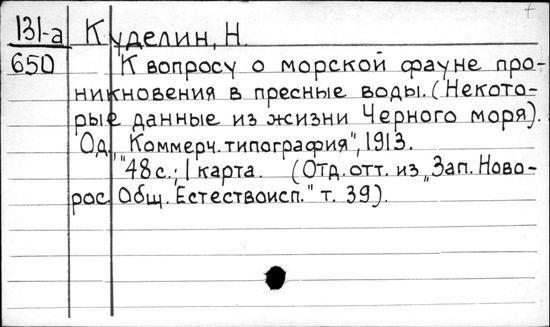 131-а Куделин, Н.
650 К вопросу о морской фауне про-
никновения в пресные воды. (Некото-
рые данные из жизни Черного моря).
Од. „Коммерч. типография", 1913.
48 с.; 1 карта. (Отд. отт. из „Зап. Ново-
рос. Общ. Естествоисп." т. 39).